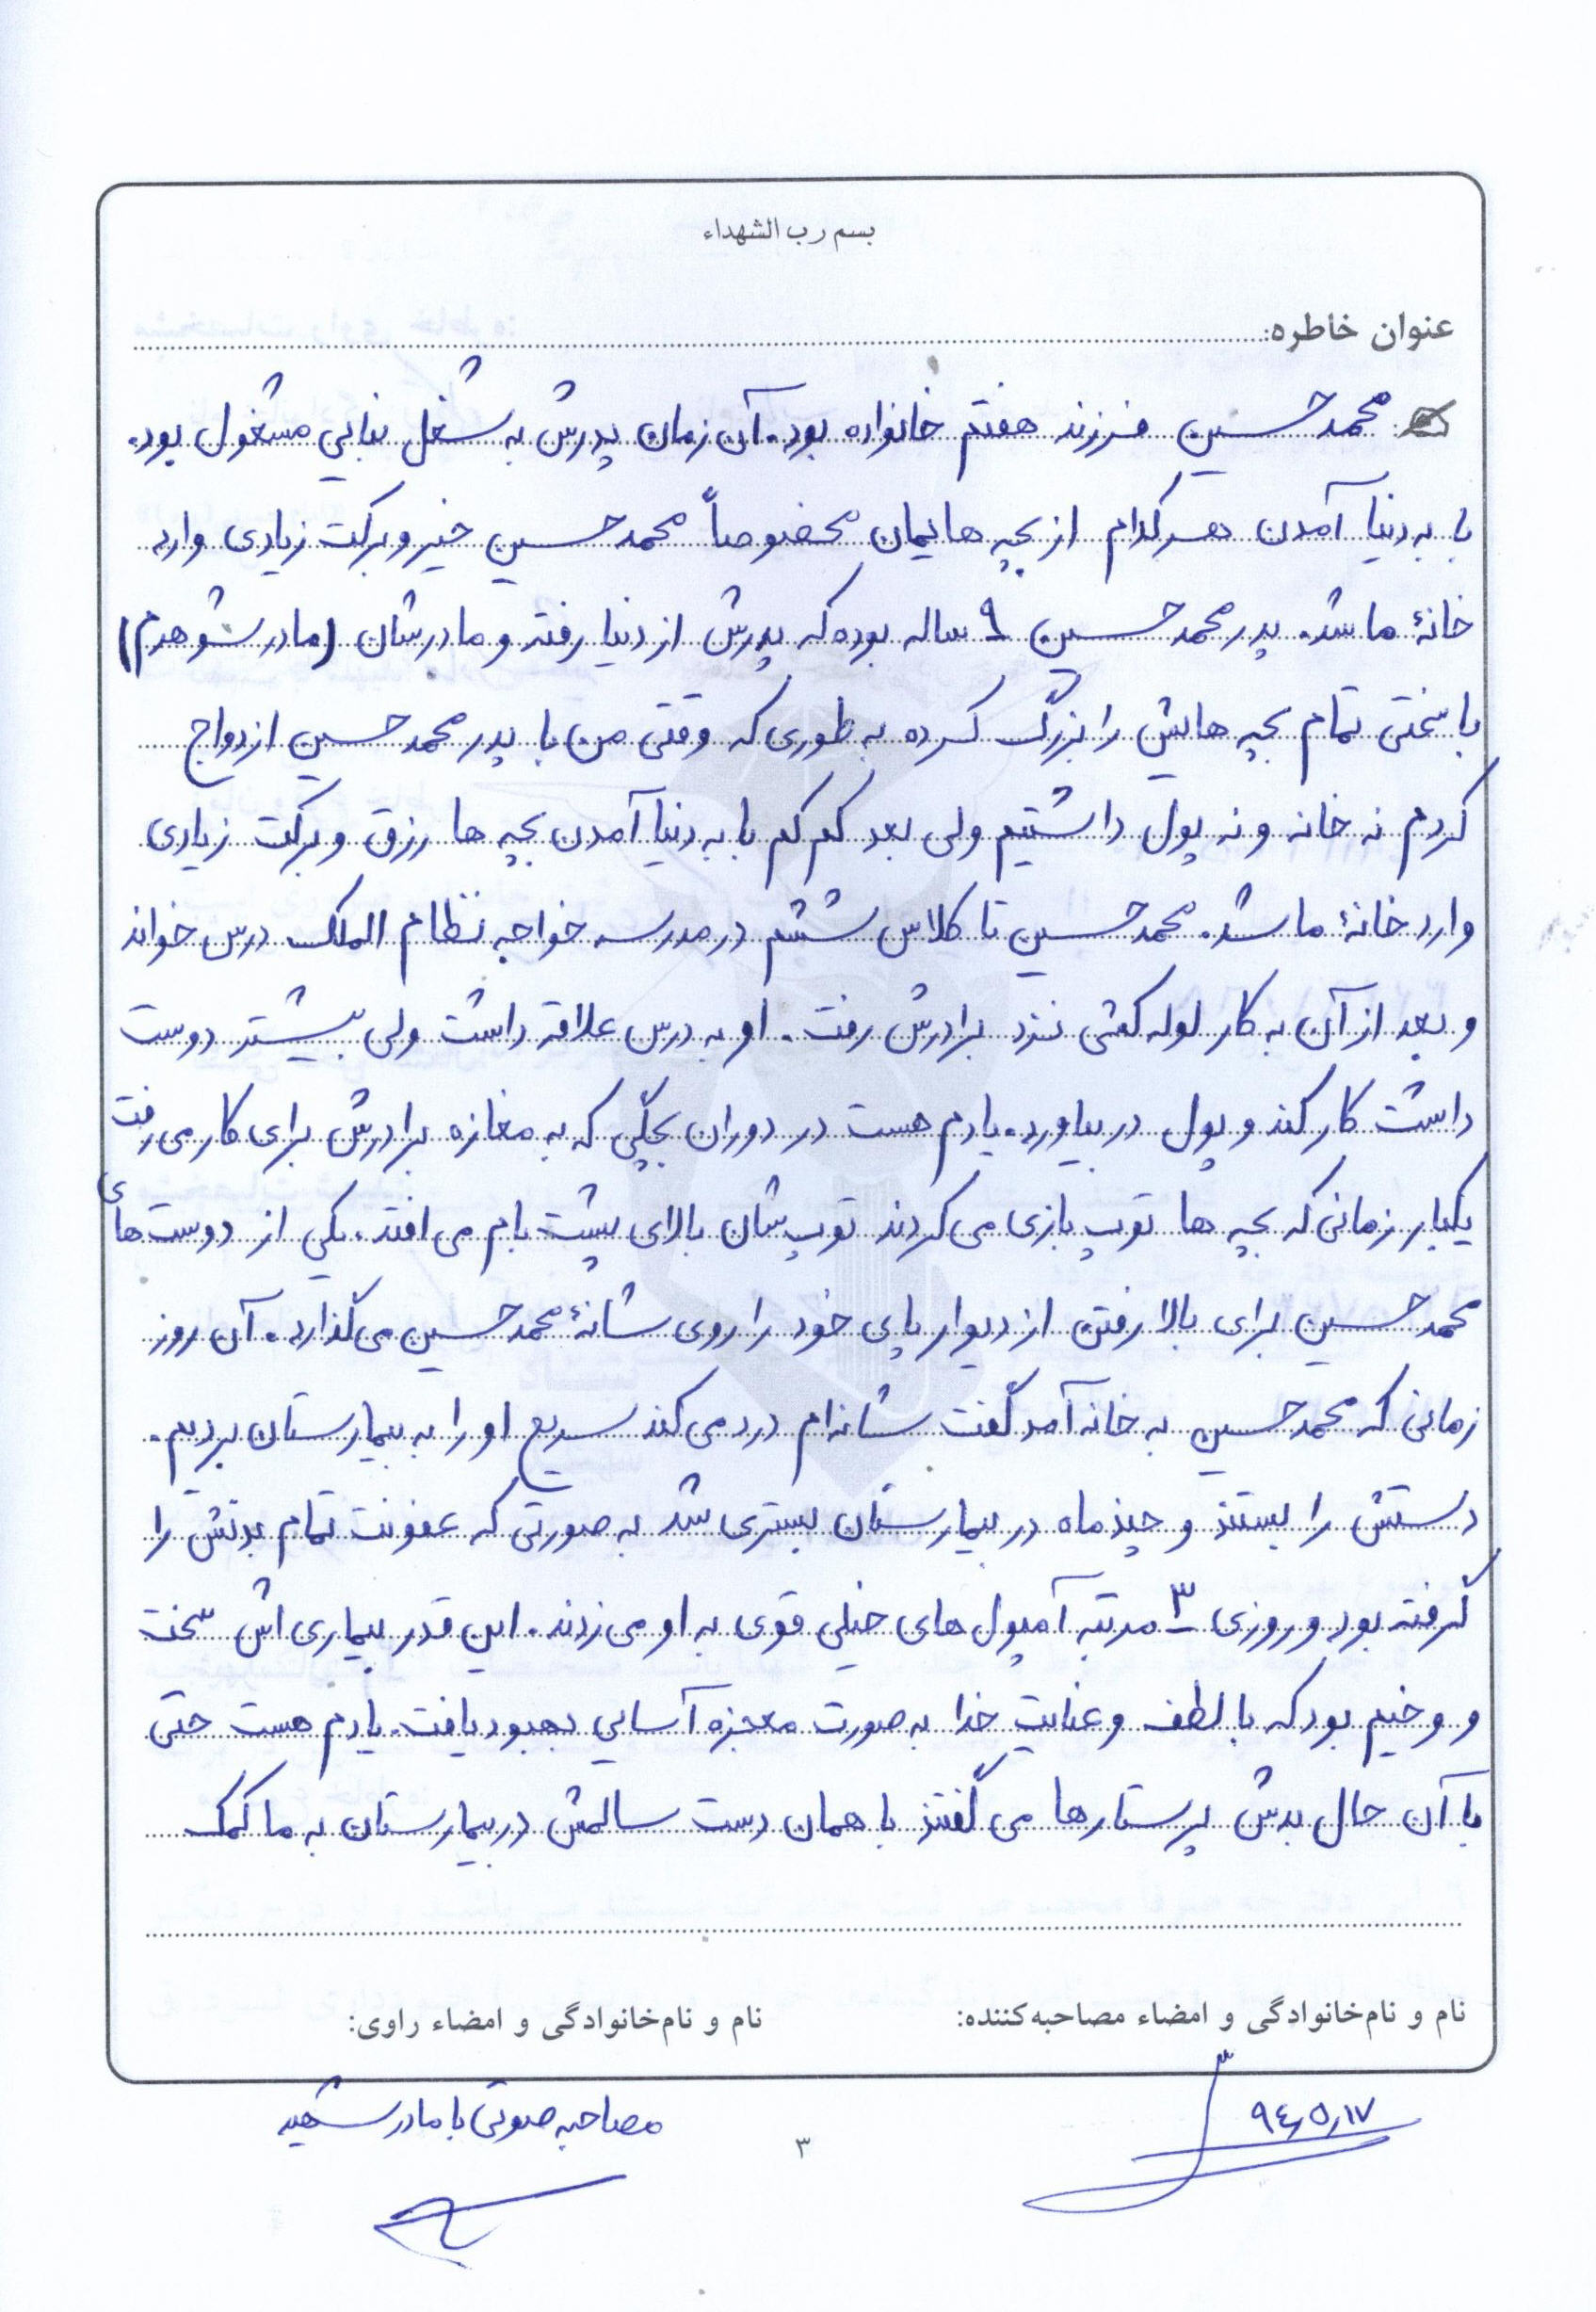 بسم رب الشهداء
عنوان خاطره:
محمدحسین فرزند هفتم خانواده بود. آن زمان پدرش به شغل بنایی مشغول بود.
با به دنیا آمدن هر کدام از بچه هایمان مخصوصاً محمدحسین خیر و برکت زیادی وارد
خانهٔ ما شد. پدر محمدحسین ۹ ساله بوده که پدرش از دنیا رفته و مادرشان (مادر شوهرم)
با سختی تمام بچه هایش را بزرگ کرده به طوری که وقتی من با پدر محمدحسین ازدواج
کردم نه خانه و نه پول داشتیم ولی بعد کم کم با به دنیا آمدن بچه ها رزق و برکت زیادی
وارد خانهٔ ما شد. محمدحسین تا کلاس ششم در مدرسه خواجه نظام الملک درس خواند
و بعد از آن به کار لوله کشی نزد برادرش رفت. او به درس علاقه داشت ولی بیشتر دوست
داشت کار کند و پول در بیاورد. یادم هست در دوران بچگی که به مغازه برادرش برای کار می رفت
یکبار زمانی که بچه ها توپ بازی می کردند توپ شان بالای پشت بام می افتد. یکی از دوست های
محمدحسین برای بالا رفتن از دیوار پای خود را روی شانهٔ محمدحسین می گذارد. آن روز
زمانی که محمدحسین به خانه آمد گفت شانه ام درد می کند سریع او را به بیمارستان بردیم.
دستش را بستند و چند ماه در بیمارستان بستری شد به صورتی که عفونت تمام بدنش را
گرفته بود و روزی ۳ مرتبه آمپول های خیلی قوی به او می زدند. این قدر بیماری اش سخت
و وخیم بود که با لطف و عنایت خدا به صورت معجزه آسایی بهبود یافت. یادم هست حتی
با آن حال بدش پرستارها می گفتند با همان دست سالمش در بیمارستان به ما کمک
نام و نام‌خانوادگی و امضاء مصاحبه‌کننده: نام و نام‌خانوادگی و امضاء راوی:
۹٤٫٥٫١٧ مصاحبه صوتی با مادر شهید
۳